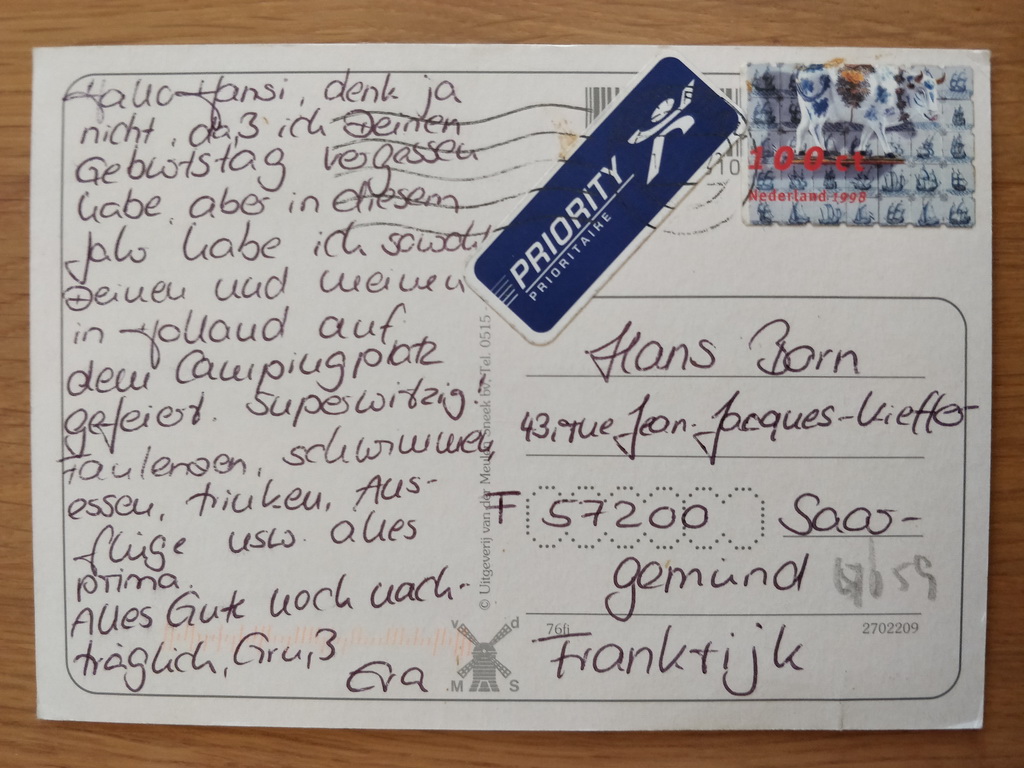 Hallo Hansi, denk ja
nicht, daß ich Deinen
Geburtstag vergessen
habe, aber in diesem
Jahr habe ich sowohl
Deinen und meinen
in Holland auf
dem Campingplatz
gefeiert. Superwitzig!
Faulenzen, schwimmen,
essen, trinken, Aus-
flüge usw. alles
prima.
Alles Gute noch nach-
träglich, Gruß
Eva
PRIORITY
PRIORITAIRE
10
100 ct
Nederland 1998
© Uitgeverij van der Meulen Sneek bv. Tel. 0515
Hans Born
43, rue Jean-Jacques-Kieffer
F 57200 Saar-
gemünd
76fi
2702209
Frankrijk
v d
M S